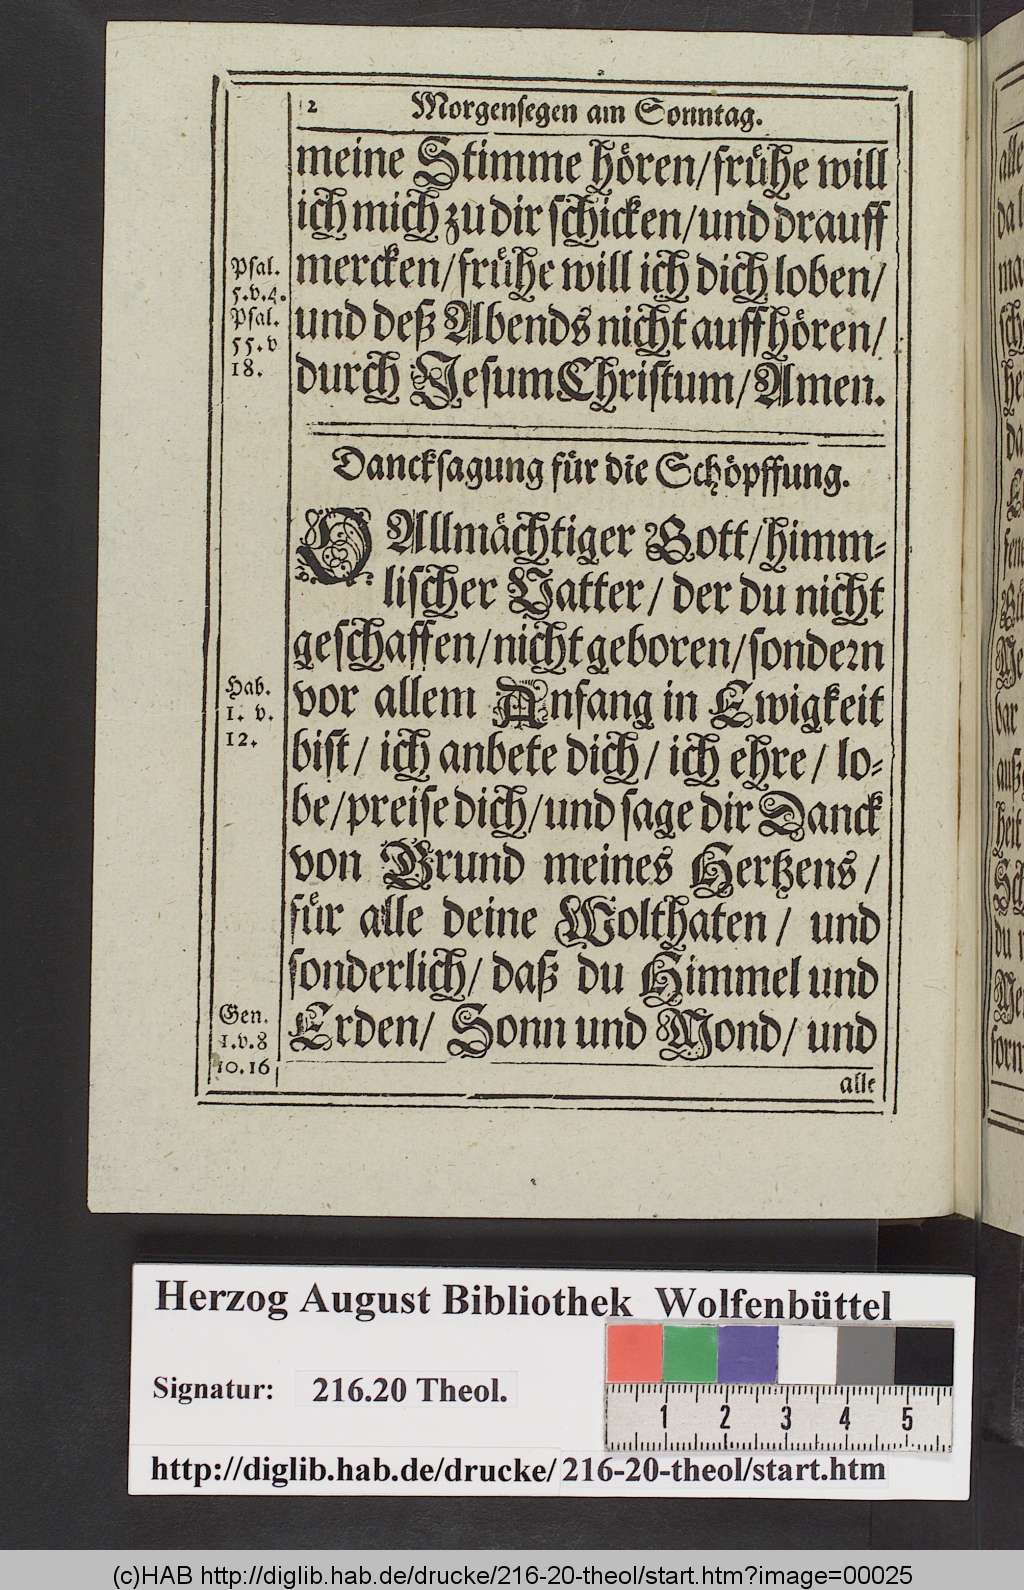 2 Morgensegen am Sonntag.
meine Stimme hören/ frühe will
ich mich zu dir schicken/ und drauff
mercken/ frühe will ich dich loben/
und deß Abends nicht auffhören/
durch Jesum Christum/ Amen.
Psal.
5.v.4.
Psal.
55.v
18.
Dancksagung für die Schöpffung.
O Allmächtiger Gott/ himm-
lischer Vatter/ der du nicht
geschaffen/ nicht geboren/ sondern
vor allem Anfang in Ewigkeit
bist/ ich anbete dich/ ich ehre/ lo-
be/ preise dich/ und sage dir Danck
von Grund meines Hertzens/
für alle deine Wolthaten/ und
sonderlich/ daß du Himmel und
Erden/ Sonn und Mond/ und
Hab.
1. v.
12.
Gen.
1.v.8
10.16
alle
Herzog August Bibliothek Wolfenbüttel
Signatur: 216.20 Theol.
1 2 3 4 5
http://diglib.hab.de/drucke/216-20-theol/start.htm
(c)HAB http://diglib.hab.de/drucke/216-20-theol/start.htm?image=00025